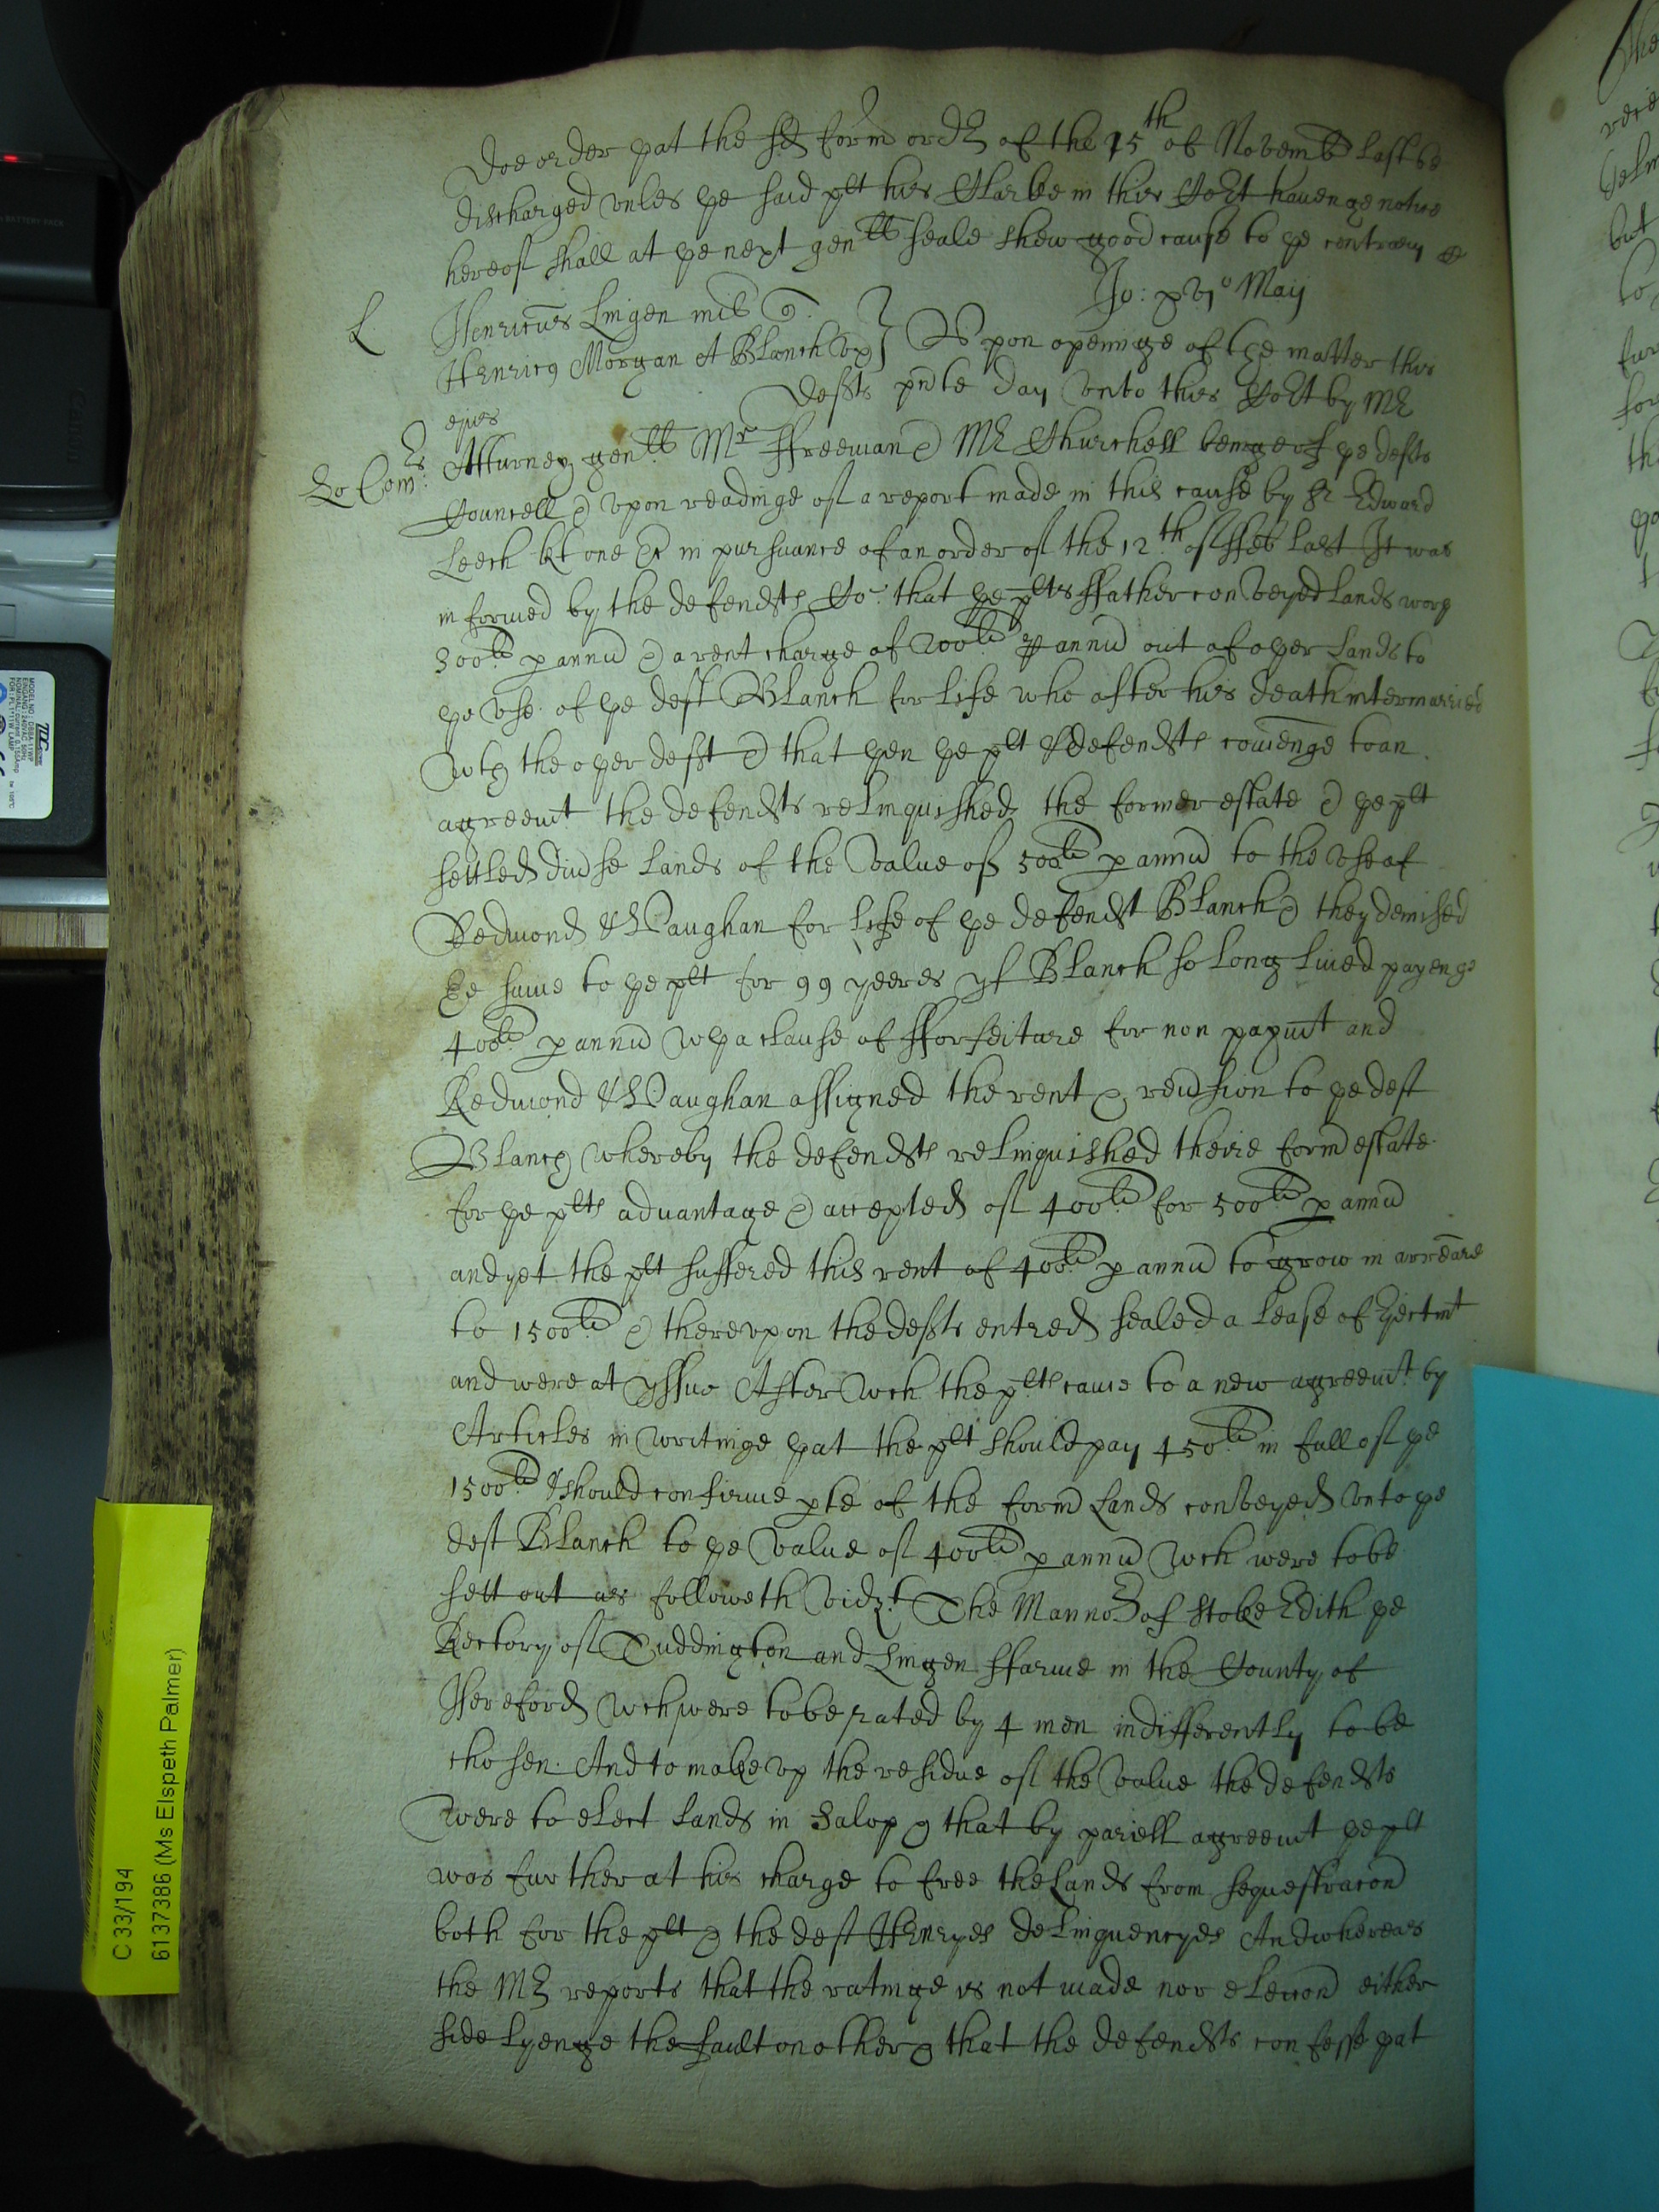 doe order þat the sd form ordr of the 15th of Novemb last be
discharged vnles þe said plt his Clarke in this Cort havenge notice
hereof shall at þe next genll seale shew good cause to þe contrary
Jo: xvjo Maij
L Henricus Lingen mil q
Henricus Morgan et Blanch vx Vpon openinge of the matter this
ejus defts pnte day vnto this Cort by Mr
Lo Comrs Atturney genll Mr ffreeman & Mr Churchell beinge of þe defts
Councell & vpon readinge of a report made in this cause by Sr Edward
Leech kt one &c in pursuance of an order of the 12th of ffeb last It was
informed by the defendts Co: that þe plts ffather conveyed lands worþ
300li p annu & a rent charge of 200li p annu out of oþer lands to
þe vse of þe deft Blanch for life who after his death intermarried
wth the oþer deft & that þen þe plt & defendts comenge to an
agreemt the defendts relinquished the former estate & þe plt
setled divse lands of the value of 500li p annu to the vse of
Redmond & Vaughan for life of þe defendt Blanch & they demised
þe same to þe plt for 99 yeeres yf Blanch so long lived payenge
400li p annu wþ a clause of fforfeiture for non paymt and
Redmond & Vaughan assigned the rent & revsion to þe deft
Blanch whereby the defendts relinquished theire form estate
for þe plts advantage & accepted of 400li for 500li p annu
and yet the plt suffered this rent of 400li p annu to grow in arreare
to 1500li & therevpon the defts entred sealed a lease of Ejectmt
and were at yssue After wch the plts came to a new agreemt by
Articles in writinge þat the plt should pay 450li in full of þe
1500li & should confirme pte of the form lands conveyed vnto þe
deft Blanch to þe value of 400li p annu wch were to be
sett out as followeth vidzt The Mannor of Stoke Edith þe
Rectory of Tuddington and Lingen ffarme in the County of
Hereford wch were to be rated by 4 men indifferently to be
chosen. And to make vp the residue of the value the defendts
were to elect lands in Salop & that by parcell agreemt þe plt
was further at his charge to free the lands from sequestracon
both for the plt & the deft Henryes delinquencyes And whereas
the Mr reports that the ratinge is not made nor eleccon either
side lyenge the fault on other & that the defendts confesse þat
C 33/194
6137386 (Ms Elspeth Palmer)